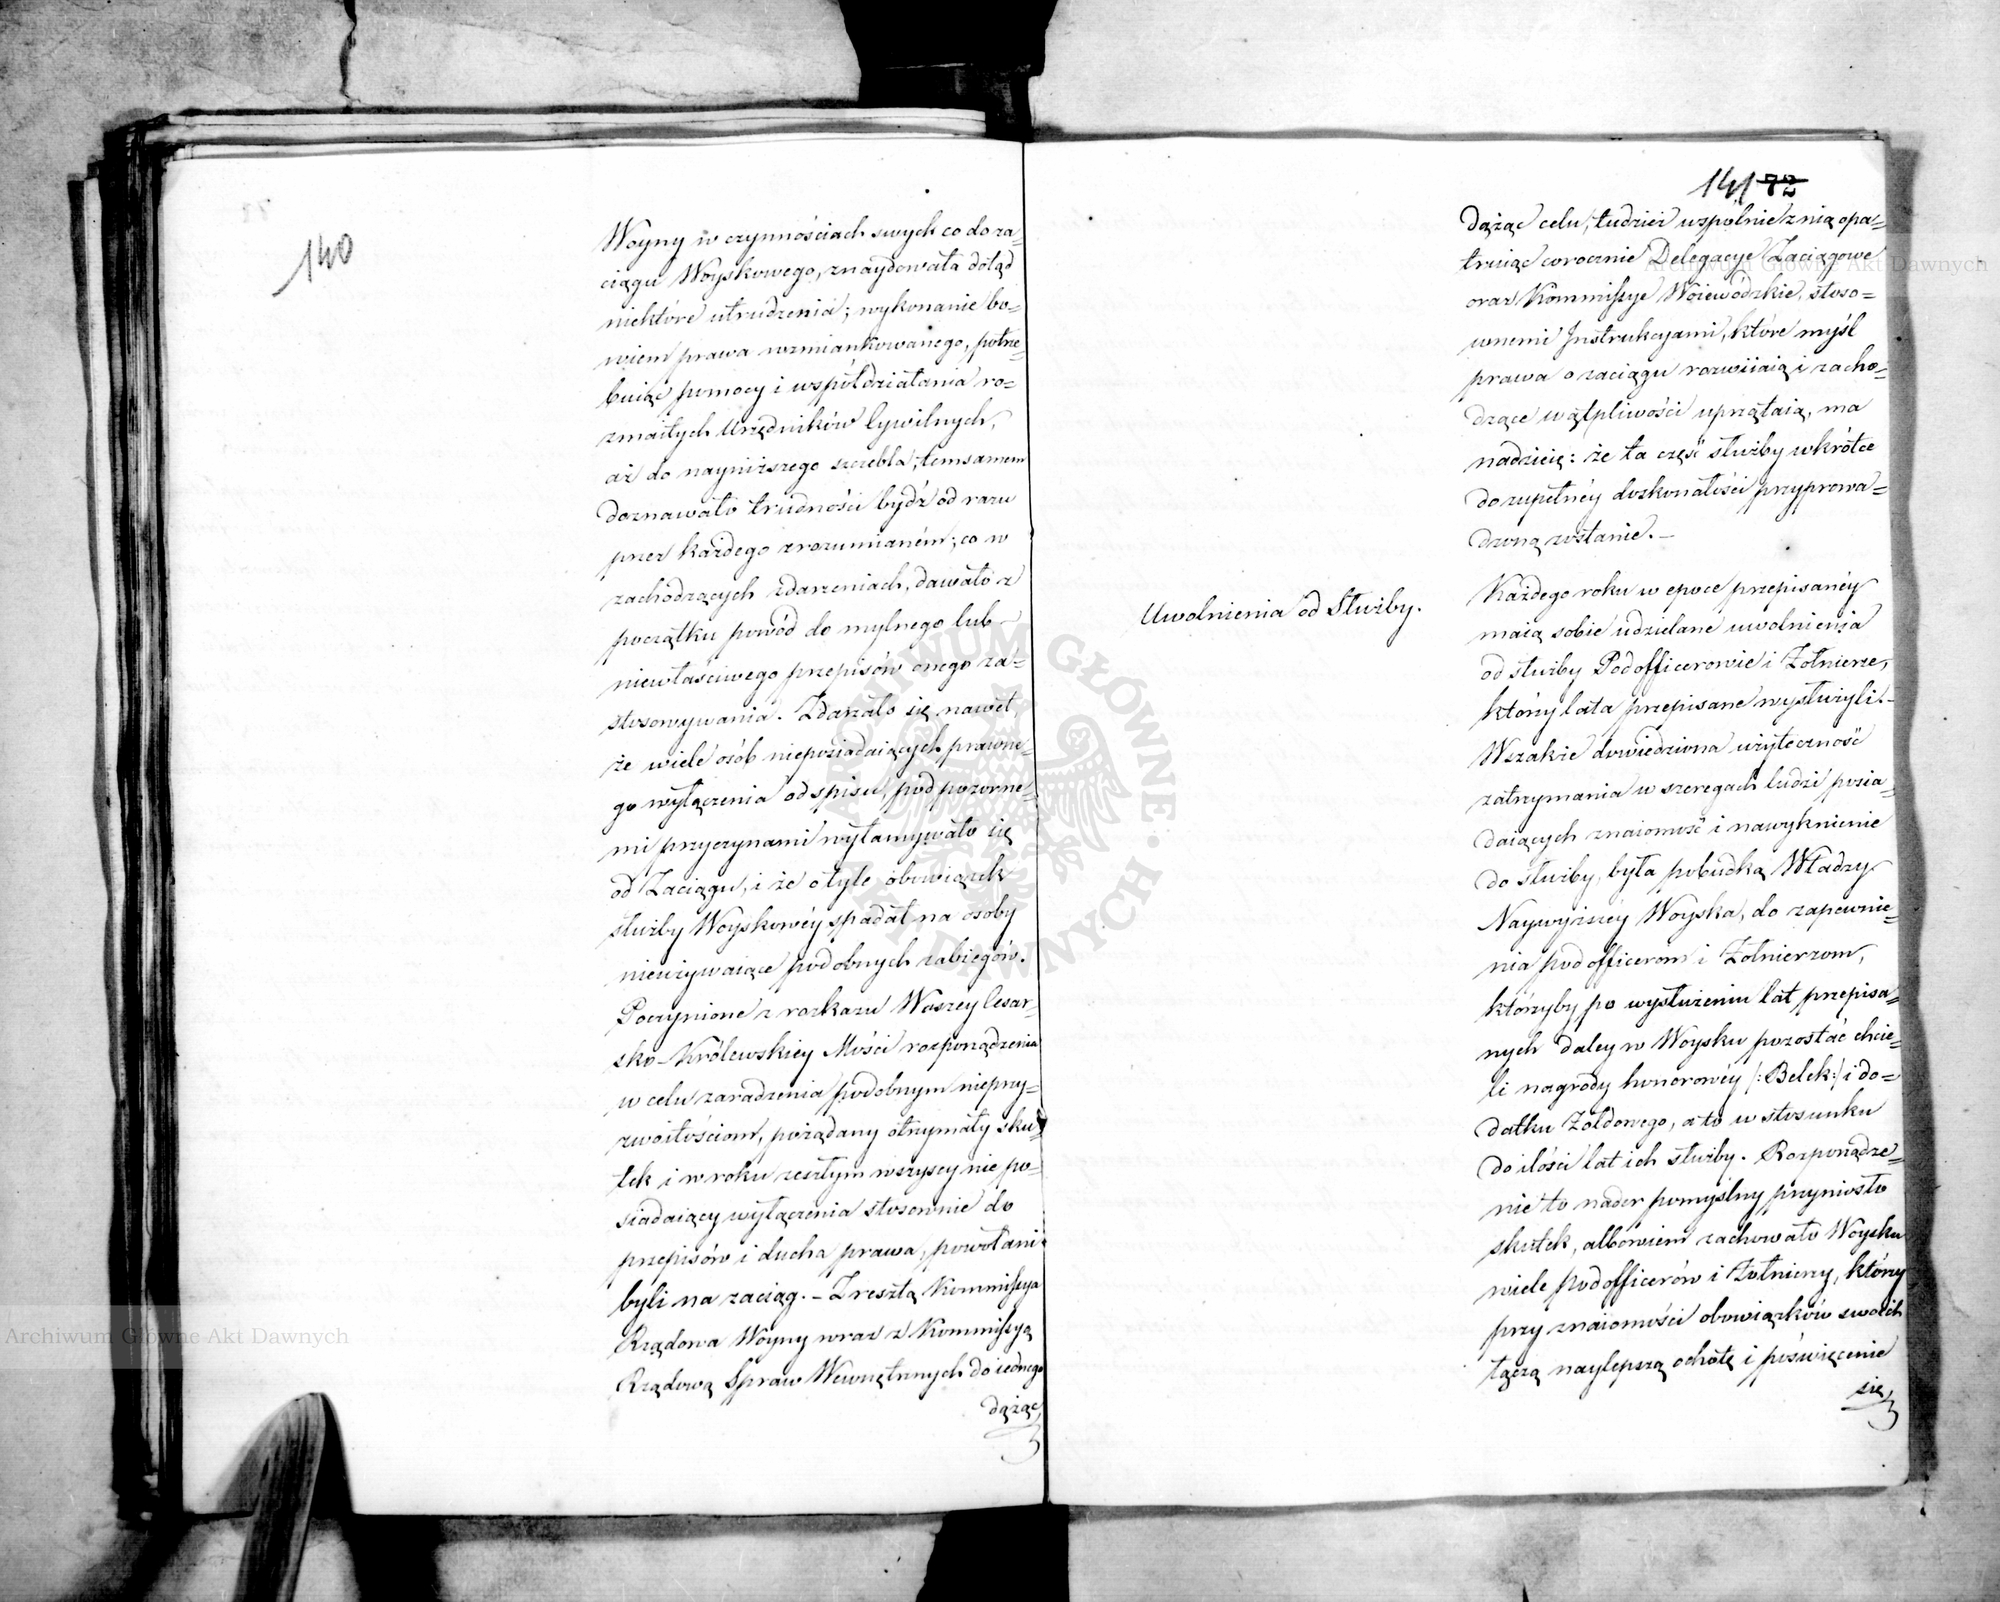 140
Woyny w czynnościach swych co do za=
ciągu Woyskowego, znaydowała dotąd
niektóre utrudzenia; wykonanie bo=
wiem prawa wzmiankowanego, potrze=
buiąc pomocy i współdziałania ro=
zmaitych Urzędników Cywilnych,
aż do nayniższego szczebla, temsamem
doznawało trudności bydź od razu
przez każdego zrozumianém; co w
zachodzących zdarzeniach, dawało z
początku powód do mylnego lub
niewłaściwego przepisów onego za=
stosowywania. Zdarzało się nawet,
że wiele osób nieposiadaiących prawne=
go wyłączenia od spisu, pod pozorne=
mi przyczynami wyłamywało się
od Zaciągu, i że o tyle obowiązek
służby Woyskowéy spadał na osoby
nieużywaiące podobnych zabiegów.
Poczynione z rozkazu Waszey Cesar=
sko-Królewskiey Mości rozporządzenia
w celu zaradzenia podobnym nieprzy=
zwoitościom, pożądany otrzymały sku=
tek i w roku zeszłym wszyscy nie po=
siadaiący wyłączenia stosownie do
przepisów i ducha prawa, powołani
byli na zaciąg. – Zresztą Kommissya
Rządowa Woyny wraz z Kommissyą
Rządową Spraw Wewnętrznych do iednego
dążąc
141 72
dążąc celu, tudzież wspólnie z nią opa=
truiąc corocznie Delegacye Zaciągowe
oraz Kommissye Woiewódzkie, stoso=
wnemi Instrukcyami, które myśl
prawa o zaciągu rozwiiaią i zacho=
dzące wątpliwości uprzątaią, ma
nadzieię: że ta część służby wkrótce
do zupełnéy doskonałości przyprowa=
dzoną zostanie. –
Uwolnienia od Służby.
Każdego roku w epoce przepisanéy
maią sobie udzielane uwolnienia
od służby Podofficerowie i Żołnierze,
którzy lata przepisane wysłużyli. –
Wszakże dowiedziona użyteczność
zatrzymania w szeregach ludzi posia=
daiących znaiomość i nawyknienie
do służby, była pobudką Władzy
Naywyższéy Woyska, do zapewnie=
nia podofficerom i Żołnierzom,
którzyby po wysłużeniu lat przepisa=
nych daley w Woysku pozostać chcie=
li nagrody honorowéy /:Belek:/ i do=
datku Żołdowego, a to w stosunku
do ilości lat ich służby. Rozporządze=
nie to nader pomyślny przyniosło
skutek, albowiem zachowało Woysku
wiele podofficerów i Żołnierzy, którzy
przy znaiomości obowiązków swoich
łączą naylepszą ochotę i poświęcenie
się
Archiwum Główne Akt Dawnych
Archiwum Główne Akt Dawnych
ARCHIWUM GŁÓWNE AKT DAWNYCH